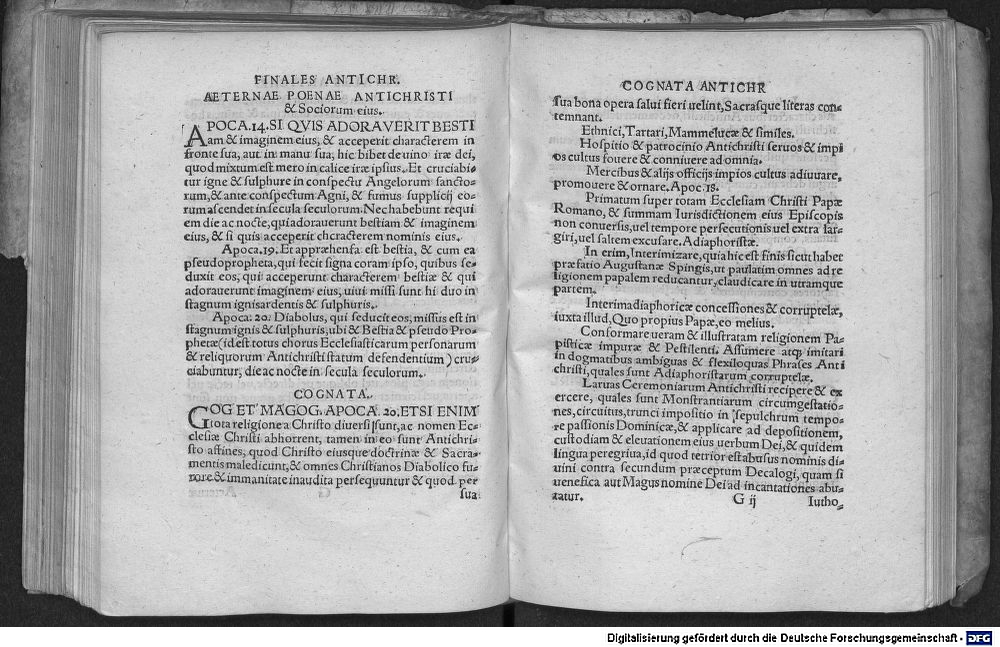 FINALES ANTICHR.
AETERNAE POENAE ANTICHRISTI
& Sociorum eius.
APOCA.14. SI QVIS ADORAVERIT BESTI
am & imaginem eius, & acceperit characterem in
fronte sua, aut in manu sua, hic bibet de uino iræ dei,
quod mixtum est mero in calice iræ ipsius. Et cruciabi-
tur igne & sulphure in conspectu Angelorum sancto-
rum, & ante conspectum Agni, & fumus supplicij eo-
rum ascendet in secula seculorum. Nec habebunt requi
em die ac nocte, qui adorauerunt bestiam & imaginem
eius, & si quis acceperit chcracterem nominis eius.
Apoca.19. Et appræhensa est bestia, & cum ea
pseudopropheta, qui fecit signa coram ipso, quibus se-
duxit eos, qui acceperunt characterem bestiæ & qui
adorauerunt imaginem eius, uiui missi sunt hi duo in
stagnum ignis ardentis & sulphuris.
Apoca. 20. Diabolus, qui seducit eos, missus est in
stagnum ignis & sulphuris, ubi & Bestia & pseudo Pro-
phetæ (id est totus chorus Ecclesiasticarum personarum
& reliquorum Antichristi statum defendentium) cru-
ciabuntur, die ac nocte in secula seculorum.
COGNATA.
GOG ET MAGOG. APOCA. 20. ETSI ENIM
tota religione a Christo diuersi sunt, ac nomen Ec-
clesiæ Christi abhorrent, tamen in eo sunt Antichri-
sto affines, quod Christo eiusque doctrinæ & Sacra-
mentis maledicunt, & omnes Christianos Diabolico fu-
rore & immanitate inaudita persequuntur & quod per
sua
COGNATA ANTICHR
sua bona opera salui fieri uelint, Sacrasque literas con-
temnant.
Ethnici, Tartari, Mammelucæ & similes.
Hospitio & patrocinio Antichristi seruos & impi
os cultus fouere & conniuere ad omnia.
Mercibus & alijs officijs impios cultus adiuuare,
promouere & ornare. Apoc. 18.
Primatum super totam Ecclesiam Christi Papæ
Romano, & summam Iurisdictionem eius Episcopis
non conuersis, uel tempore persecutionis uel extra lar-
giri, uel saltem excusare. Adiaphoristæ.
In erim, Interimizare, quia hic est finis sicut habet
præfatio Augustanæ Spingis, ut paulatim omnes ad re
ligionem papalem reducantur, claudicare in utramque
partem.
Interimadiaphoricæ concessiones & corruptelæ,
iuxta illud, Quo propius Papæ, eo melius.
Conformare ueram & illustratam religionem Pa-
pisticæ impuræ & Pestilenti. Assumere atq; imitari
in dogmatibus ambiguas & flexiloquas Phrases Anti
christi, quales sunt Adiaphoristarum corruptelæ.
Laruas Ceremoniarum Antichristi recipere & ex
ercere, quales sunt Monstrantiarum circumgestatio-
nes, circuitus, trunci impositio in sepulchrum tempo-
re passionis Dominicæ, & applicare ad depositionem,
custodiam & eleuationem eius uerbum Dei, & quidem
lingua peregriua, id quod tetrior est abusus nominis di-
uini contra secundum præceptum Decalogi, quam si
uenefica aut Magus nomine Dei ad incantationes abu-
tatur.
G ij Iutho-
Digitalisierung gefördert durch die Deutsche Forschungsgemeinschaft - DFG